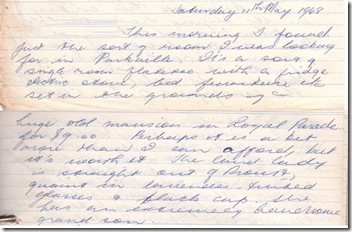 Saturday 11th May 1968
This morning I found
just the sort of room I was looking
for in Parkville. It's a sort of
single room flatette with a fridge
electric stove, bed furniture etc
set in the grounds of a
huge old mansion in Royal Parade.
for $9.00. Perhaps it is a bit
more than I can afford, but
it's worth it. The land lady
is straight out of Proust,
quaint in lavender tinted
glasses & black cap. She
has an extremely handsome
grand son.